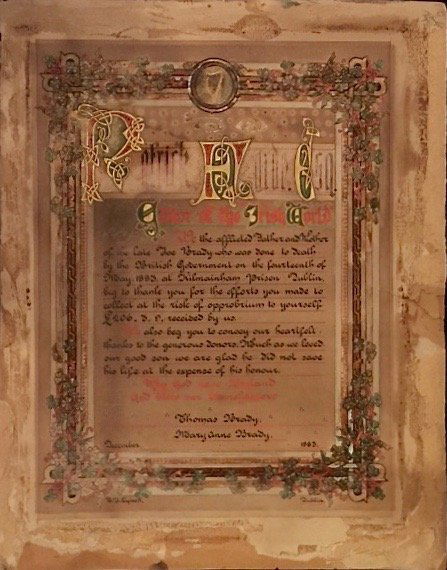 Patrick Ford
Editor of the Irish World
We the afflicted Father and Mother
of the late Joe Brady who was done to death
by the British Government on the fourteenth of
May 1883 at Kilmainham Prison Dublin,
beg to thank you for the efforts you made to
collect at the risk of opprobrium to yourself
received by us.
We also beg you to convey our heartfelt
thanks to the generous donors. Much as we loved
our good son we are glad he did not save
his life at the expense of his honour.
May God save Ireland
God bless our
Thomas Brady.
Mary Anne Brady.
December 1883.
Dublin